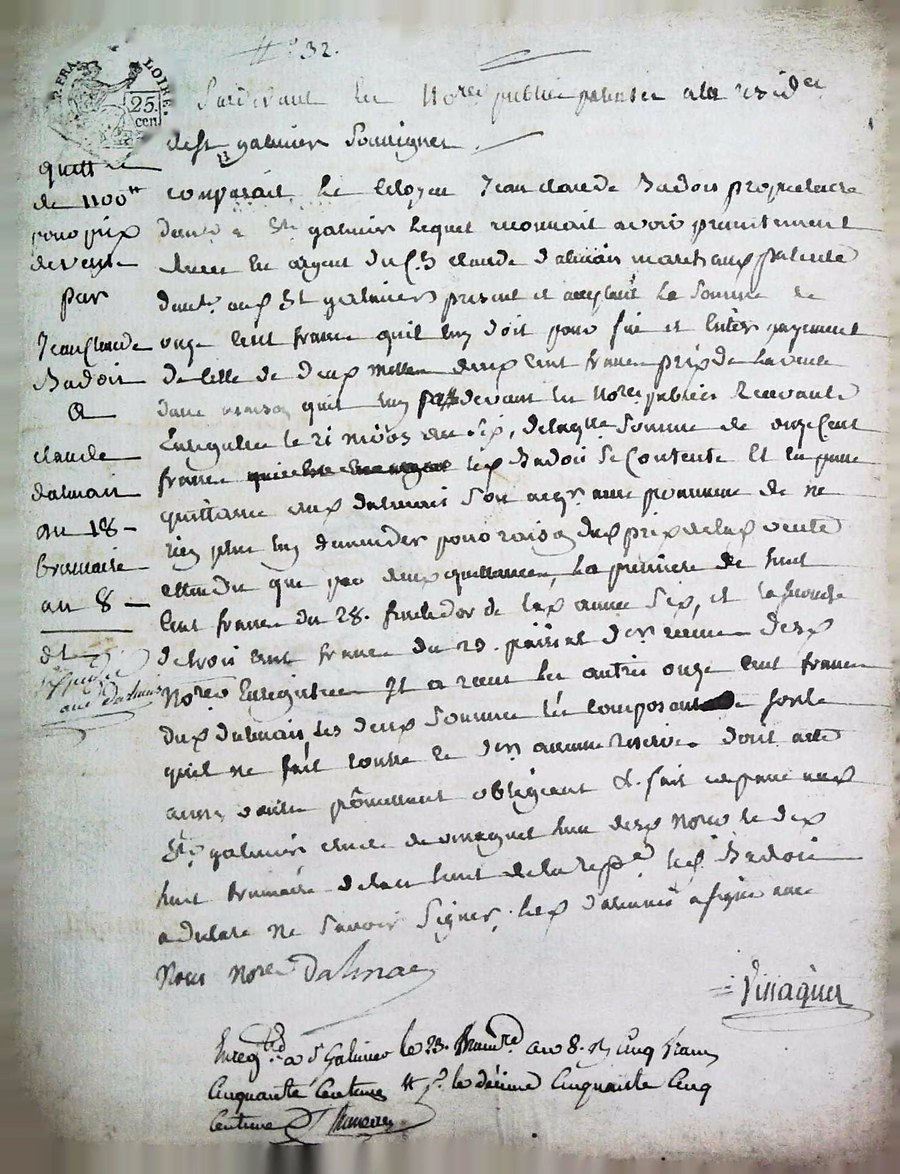 N° 32.
REP. FRA.
LOIRE.
25.
cen
Pardevant les Nores publics patentés a la resid.ce
de st galmier soussignés
quitt.ce
de 1100tt
pour prix
de vente
par
Jean Claude
Badoit
a
claude
dalmais
du 18
brumaire
an 8
comparait le Citoyen Jean claude Badoit proprietaire
demt a St galmier lequel reconnait avoir presentement
receu en argent du C.en claude dalmais marchand patenté
demt. aud St galmier present et acceptant la somme de
onze Cent francs quil luy doit pour fin et Entier payement
de Celle de deux mille deux Cent francs prix de la vente
dune maison quil luy devant les Nores publics Recevants
Enregistrée le 21 nivos an six, de laqlle somme de onze Cent
francs led Badoit se Contente Et en passe
quittance aud dalmais son acqr avec promesse de ne
rien plus luy demander pour raison dud prix de lad vente
attendu que par deux quittances, La premiere de huit
Cent francs du 28. fructidor de lad année six, et la seconde
de trois cent francs du 29. prairial der receues desd
Nores Enregistrées Il a receu les autres onze cent francs
dud dalmais, les deux sommes
quil ne fait contre le der aucune reserve. dont acte
ainsi voulu promettant obligeant &. fait et passé aud
St galmier etude de vinagner lun desd Nores le dix
huit brumaire de lan huit de la repe led Badoit
a declaré ne savoir signer, led dalmais a signé avec
Nous Nores Dalmais
Vinagner
Enregtré a St Galmier le 23. Brumre an 8. Cinq francs
Cinquante Centimes le décime Cinquante Cinq
Centimes